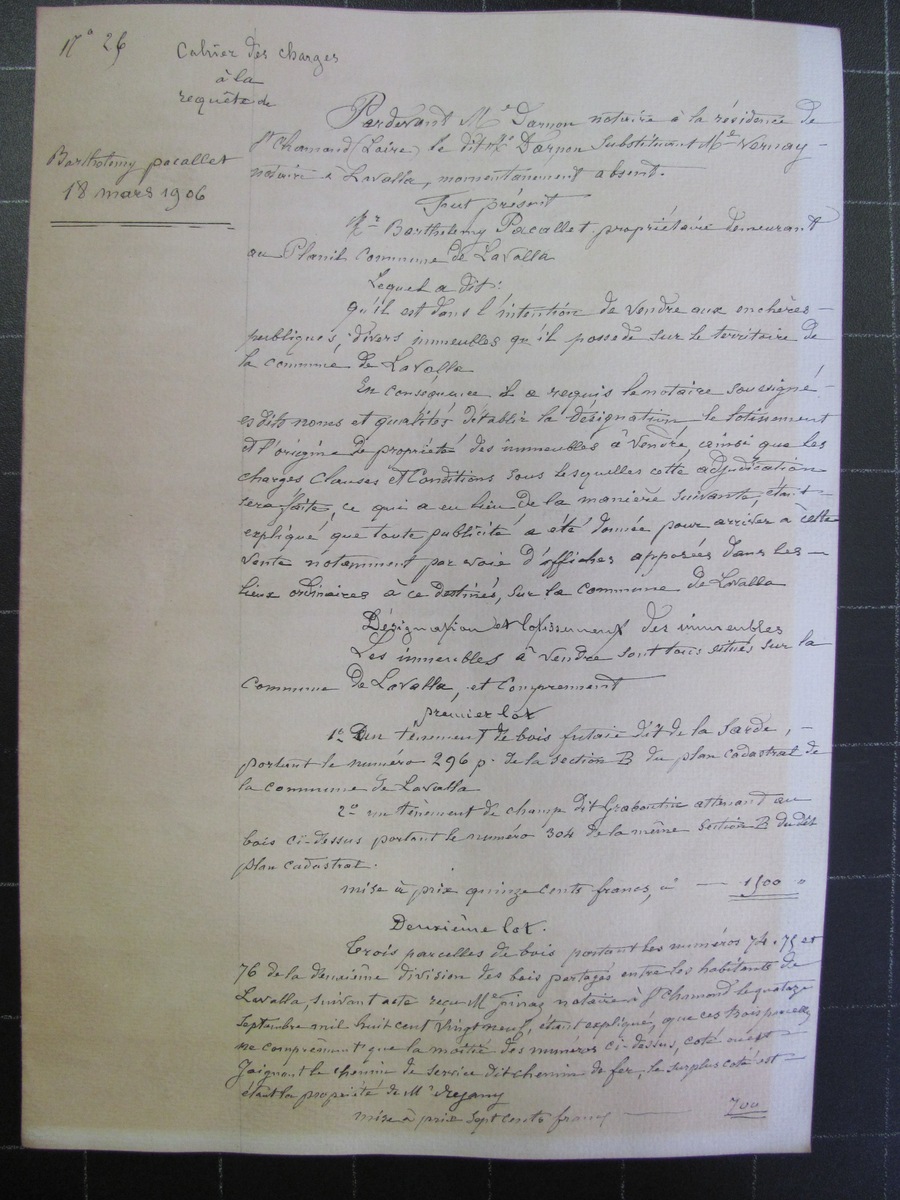 N° 26
Cahier des charges
à la
requête de
Barthelemy pacallet
18 mars 1906
Pardevant Me Darnon notaire à la résidence de
St Chamond (Loire) le dit Me Darnon Substituant Me Vernay -
notaire à Lavalla, momentanement absent.
Fut présent
Mr Barthelemy Pacallet propriétaire demeurant
au Planil commune de LaValla
Lequel a dit:
qu'il est dans l'intention de vendre aux enchères -
publiques, divers immeubles qu'il possede sur le territoire de
la commune de LaValla
En conséquence il a requis le notaire soussigné -
esdits noms et qualités d'établir la désignation le lotissement
et l'origine de propriété des immeubles à vendre, ainsi que les
charges clauses et Conditions sous lesquelles cette adjudication
sera faite, ce qui a eu lieu de la manière suivante, étant -
expliqué que toute publicité a été donnée pour arriver à cette
vente notamment par voie d'affiches apposées dans les -
lieux ordinaires à ce destinés, sur la commune de LaValla
Désignation et lotissement des immeubles
Les immeubles à vendre sont tous situés sur la
commune de LaValla, et Comprennent
premier lot
1° Un tènement de bois futaie dit de la Sarde, -
portant le numéro 296 p. de la section B du plan cadastral de
la commune de Lavalla
2° un tènement de champ dit attenant au
bois ci-dessus portant le numéro 304 de la même section B du dit
plan cadastral.
mise à prix quinze cents francs, ci - 1500 "
Deuxième lot.
Trois parcelles de bois portant les numéros 74. 75 et
76 de la deuxième division des bois partagés entre les habitants de
Lavalla, suivant acte reçu Me finaz notaire à St Chamond le quatorze
Septembre mil huit cent vingt neuf, étant expliqué, que ces trois parcelles
ne comprennent que la moitié des numéros ci-dessus, coté ouest
Joignant le chemin de service dit chemin de fer, le surplus coté est -
étant la propriété de Mr
mise à prix Sept cents francs - 700